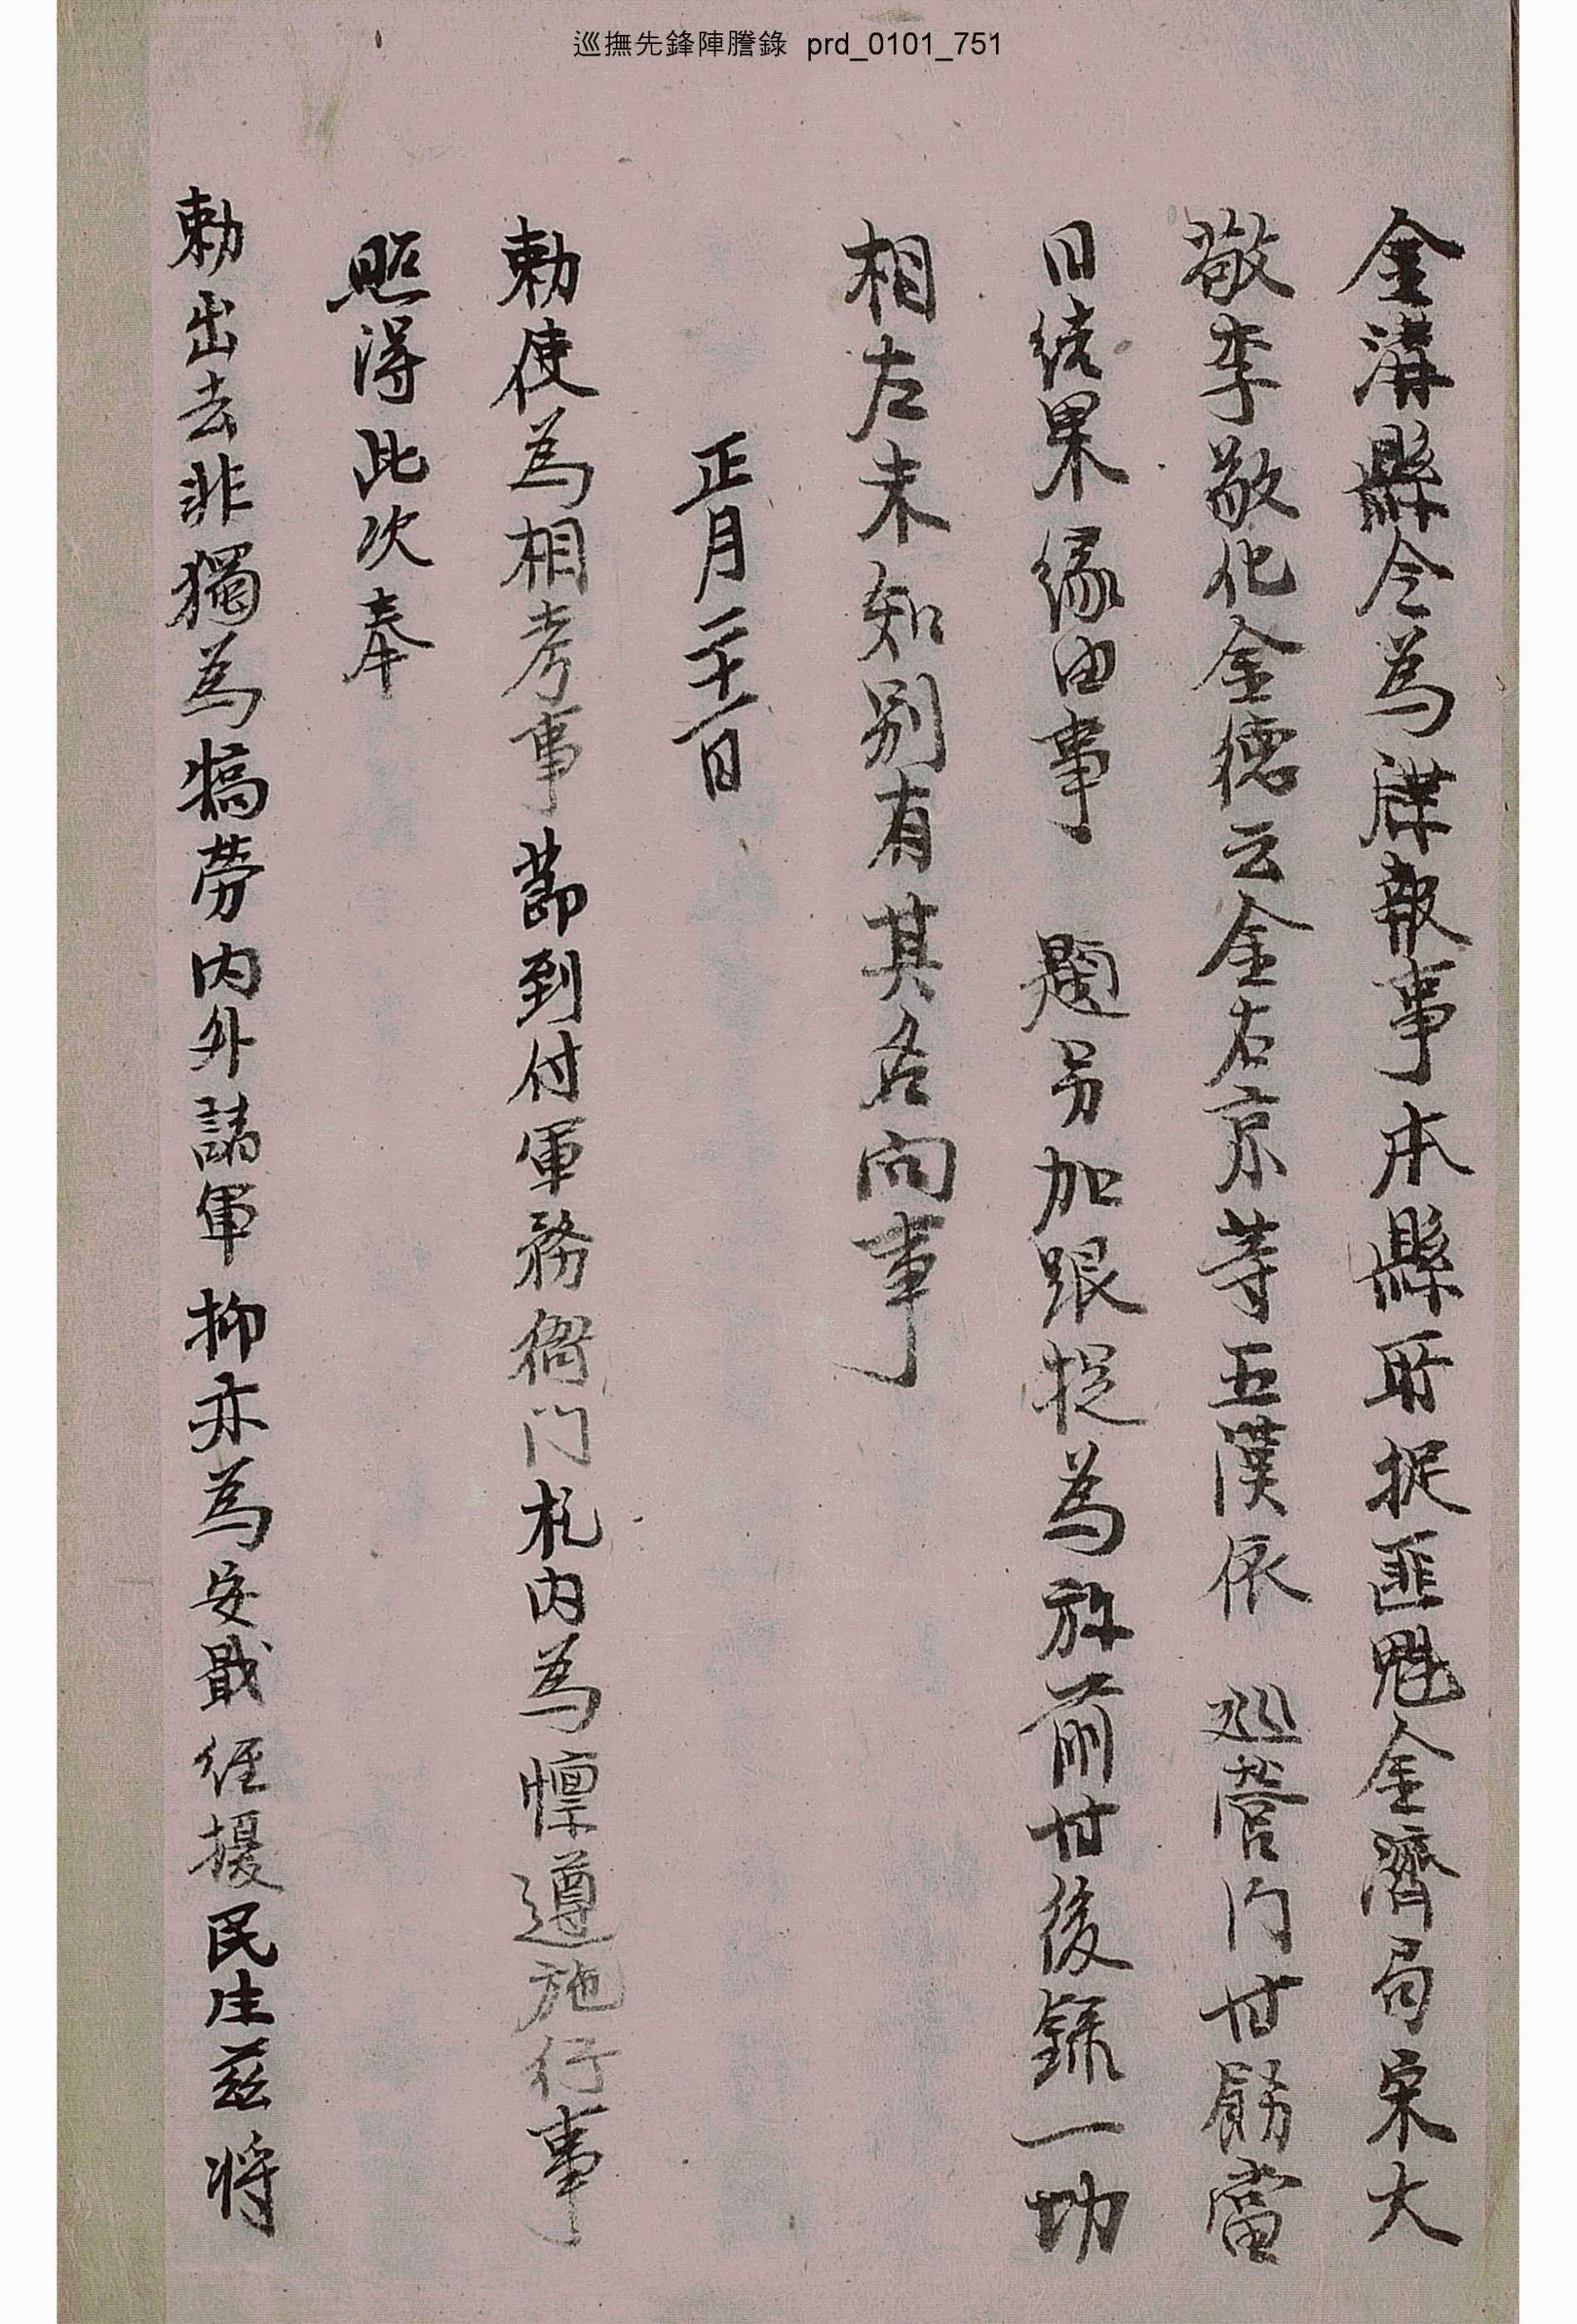 巡撫先鋒陣謄錄 prd_0101_751
金溝縣令為牒報事本縣所捉匪魁金濟局宋大
敬李敬化金德云金右京等五漢依 巡營門甘飭當
日結果緣由事 題另加跟捉為旀前甘後錄一切
相左未知別有其名向事
正月二十一日
勅使為相考事節到付軍務衙門札內為懍遵施行事
照得此次奉
勅出去非獨為犒勞內外諸軍抑亦為安戢經擾民生茲將